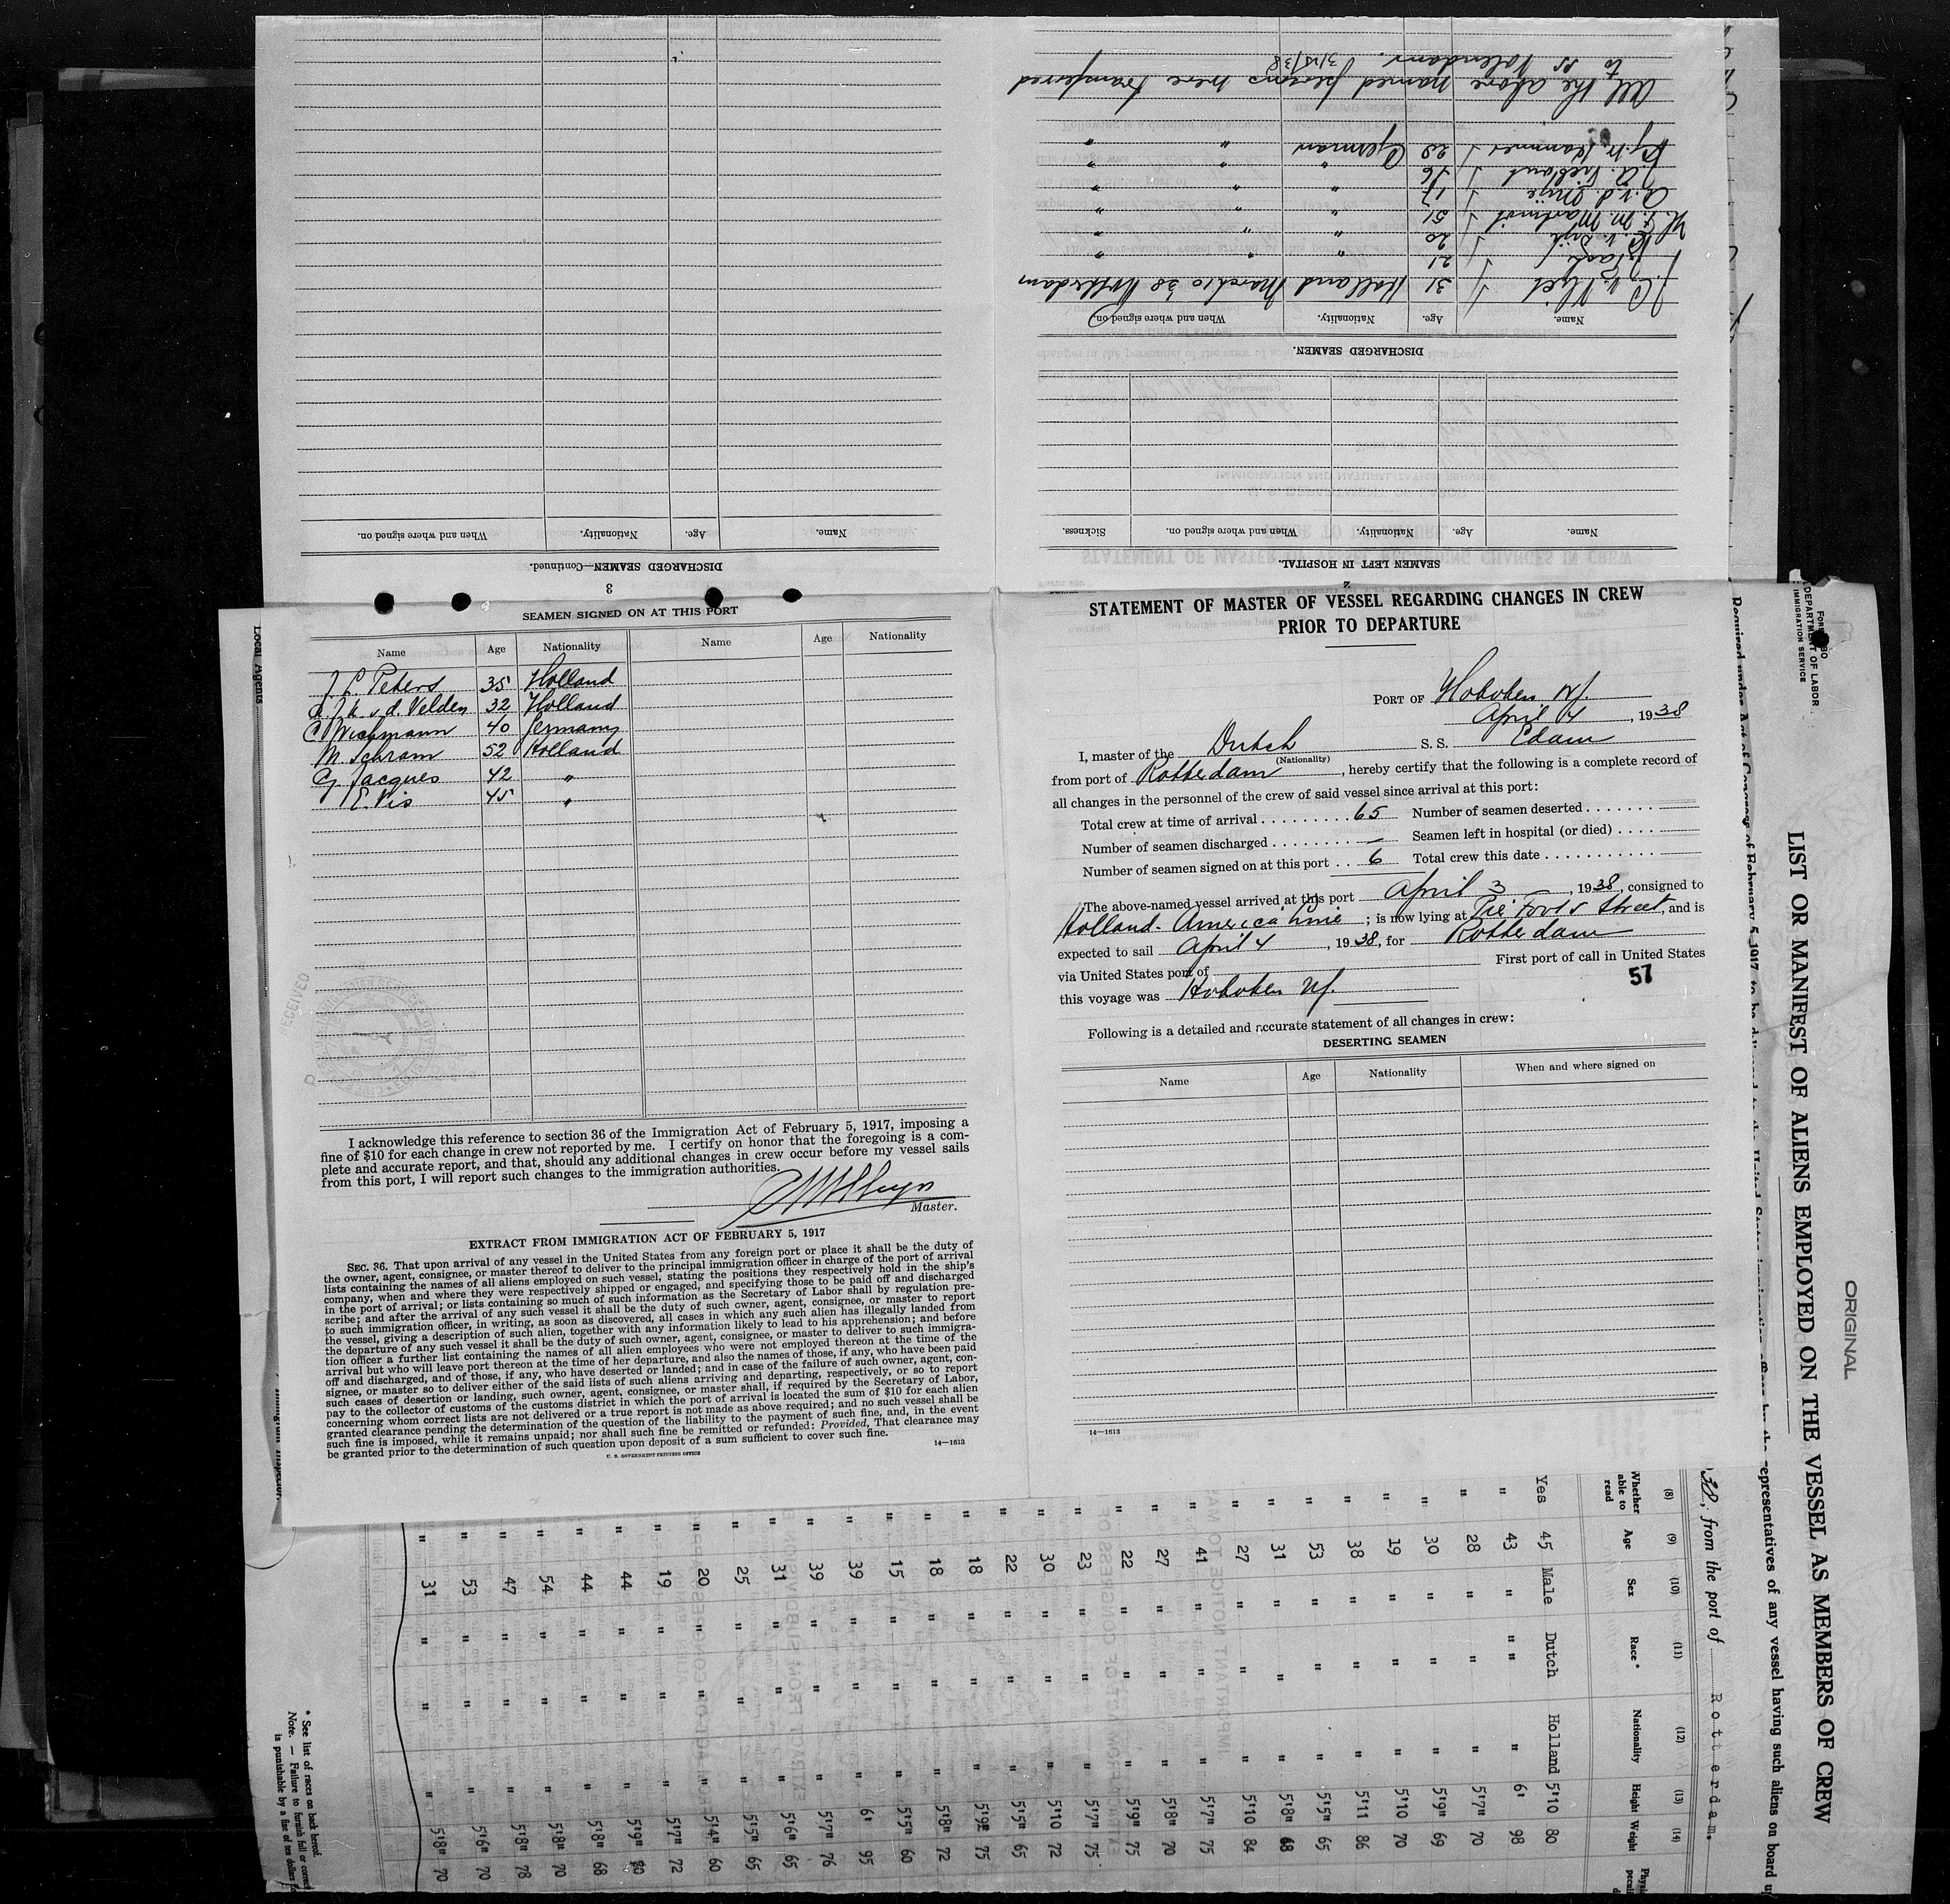 3
DISCHARGED SEAMEN—Continued.
Name. Age. Nationality. When and where signed on.
2
SEAMEN LEFT IN HOSPITAL.
Name. Age. Nationality. When and where signed on. Sickness.
DISCHARGED SEAMEN.
Name. Age. Nationality. When and where signed on.
31 Holland March 10 38 Rotterdam
21 " " "
20 " " "
51 " " "
17 " " "
16 " " "
28 German " "
All the above named persons were transferred
to ss Volendam. 3/15/38
SEAMEN SIGNED ON AT THIS PORT
Name Age Nationality Name Age Nationality
J. L. Peters 35 Holland
v. d. Velden 32 Holland
C Wichmann 40 Germany
M. Schram 52 Holland
G. Jacques 42 "
E. Vis 45 "
RECEIVED
I acknowledge this reference to section 36 of the Immigration Act of February 5, 1917, imposing a
fine of $10 for each change in crew not reported by me. I certify on honor that the foregoing is a com-
plete and accurate report, and that, should any additional changes in crew occur before my vessel sails
from this port, I will report such changes to the immigration authorities.
Master.
EXTRACT FROM IMMIGRATION ACT OF FEBRUARY 5, 1917
SEC. 36. That upon arrival of any vessel in the United States from any foreign port or place it shall be the duty of
the owner, agent, consignee, or master thereof to deliver to the principal immigration officer in charge of the port of arrival
lists containing the names of all aliens employed on such vessel, stating the positions they respectively hold in the ship's
company, when and where they were respectively shipped or engaged, and specifying those to be paid off and discharged
in the port of arrival; or lists containing so much of such information as the Secretary of Labor shall by regulation pre-
scribe; and after the arrival of any such vessel it shall be the duty of such owner, agent, consignee, or master to report
to such immigration officer, in writing, as soon as discovered, all cases in which any such alien has illegally landed from
the vessel, giving a description of such alien, together with any information likely to lead to his apprehension; and before
the departure of any such vessel it shall be the duty of such owner, agent, consignee, or master to deliver to such immigra-
tion officer a further list containing the names of all alien employees who were not employed thereon at the time of the
arrival but who will leave port thereon at the time of her departure, and also the names of those, if any, who have been paid
off and discharged, and of those, if any, who have deserted or landed; and in case of the failure of such owner, agent, con-
signee, or master so to deliver either of the said lists of such aliens arriving and departing, respectively, or so to report
such cases of desertion or landing, such owner, agent, consignee, or master shall, if required by the Secretary of Labor,
pay to the collector of customs of the customs district in which the port of arrival is located the sum of $10 for each alien
concerning whom correct lists are not delivered or a true report is not made as above required; and no such vessel shall be
granted clearance pending the determination of the question of the liability to the payment of such fine, and, in the event
such fine is imposed, while it remains unpaid; nor shall such fine be remitted or refunded: Provided, That clearance may
be granted prior to the determination of such question upon deposit of a sum sufficient to cover such fine.
U. S. GOVERNMENT PRINTING OFFICE 14—1613
STATEMENT OF MASTER OF VESSEL REGARDING CHANGES IN CREW
PRIOR TO DEPARTURE
PORT OF Hoboken NJ.
April 4, 1938
I, master of the Dutch S. S. Edam
(Nationality)
from port of Rotterdam, hereby certify that the following is a complete record of
all changes in the personnel of the crew of said vessel since arrival at this port:
Total crew at time of arrival . . . . . . . . . 65 Number of seamen deserted . . . . . . .
Number of seamen discharged . . . . . . . . — Seamen left in hospital (or died) . . . .
Number of seamen signed on at this port . . 6 Total crew this date . . . . . . . . . . .
The above-named vessel arrived at this port April 3, 1938, consigned to
Holland-America Line; is now lying at Street, and is
expected to sail April 4, 1938, for Rotterdam
via United States port of First port of call in United States
this voyage was Hoboken NJ.
57
Following is a detailed and accurate statement of all changes in crew:
DESERTING SEAMEN
Name Age Nationality When and where signed on
14—1613
DEPARTMENT OF LABOR
IMMIGRATION SERVICE
ORIGINAL
LIST OR MANIFEST OF ALIENS EMPLOYED ON THE VESSEL AS MEMBERS OF CREW
representatives of any vessel having such aliens on board
38, from the port of Rotterdam.
(8) (9) (10) (11) (12) (13) (14)
Whether able to read Age Sex Race * Nationality Height Weight
Yes 45 Male Dutch Holland 5'10 80
" 43 " " " " 6' 98
" 28 " " " 5'7" 70
" 30 " " " 5'9" 69
" 19 " " " 5'10 70
" 38 " " " 5'11 86
" 53 " " " 5'5" 65
" 31 " " " 5'8" 68
" 27 " " " 5'10 84
" 41 " " " 5'7" 75
" 27 " " " 5'8" 70
" 22 " " " 5'9" 75
" 23 " " " 5'7" 75
" 30 " " " 5'10 72
" 22 " " " 5'5" 65
" 18 " " " 5'9" 75
" 18 " " " 5'8" 72
" 15 " " " 5'5" 60
" 39 " " " 6' 95
" 39 " " " 5'7" 76
" 31 " " " 5'6" 65
" 25 " " " 5'5" 65
" 20 " " " 5'4" 60
" 19 " " " 5'7" 72
" 44 " " " 5'9"
" 44 " " " 5'8" 68
" 54 " " " 5'8" 70
" 47 " " " 5'8" 78
" 53 " " " 5'6" 70
" 31 " " " 5'8" 70
* See list of races on back hereof.
Note. — Failure to furnish full or correct
is punishable by a fine of ten dollars
Local Agents